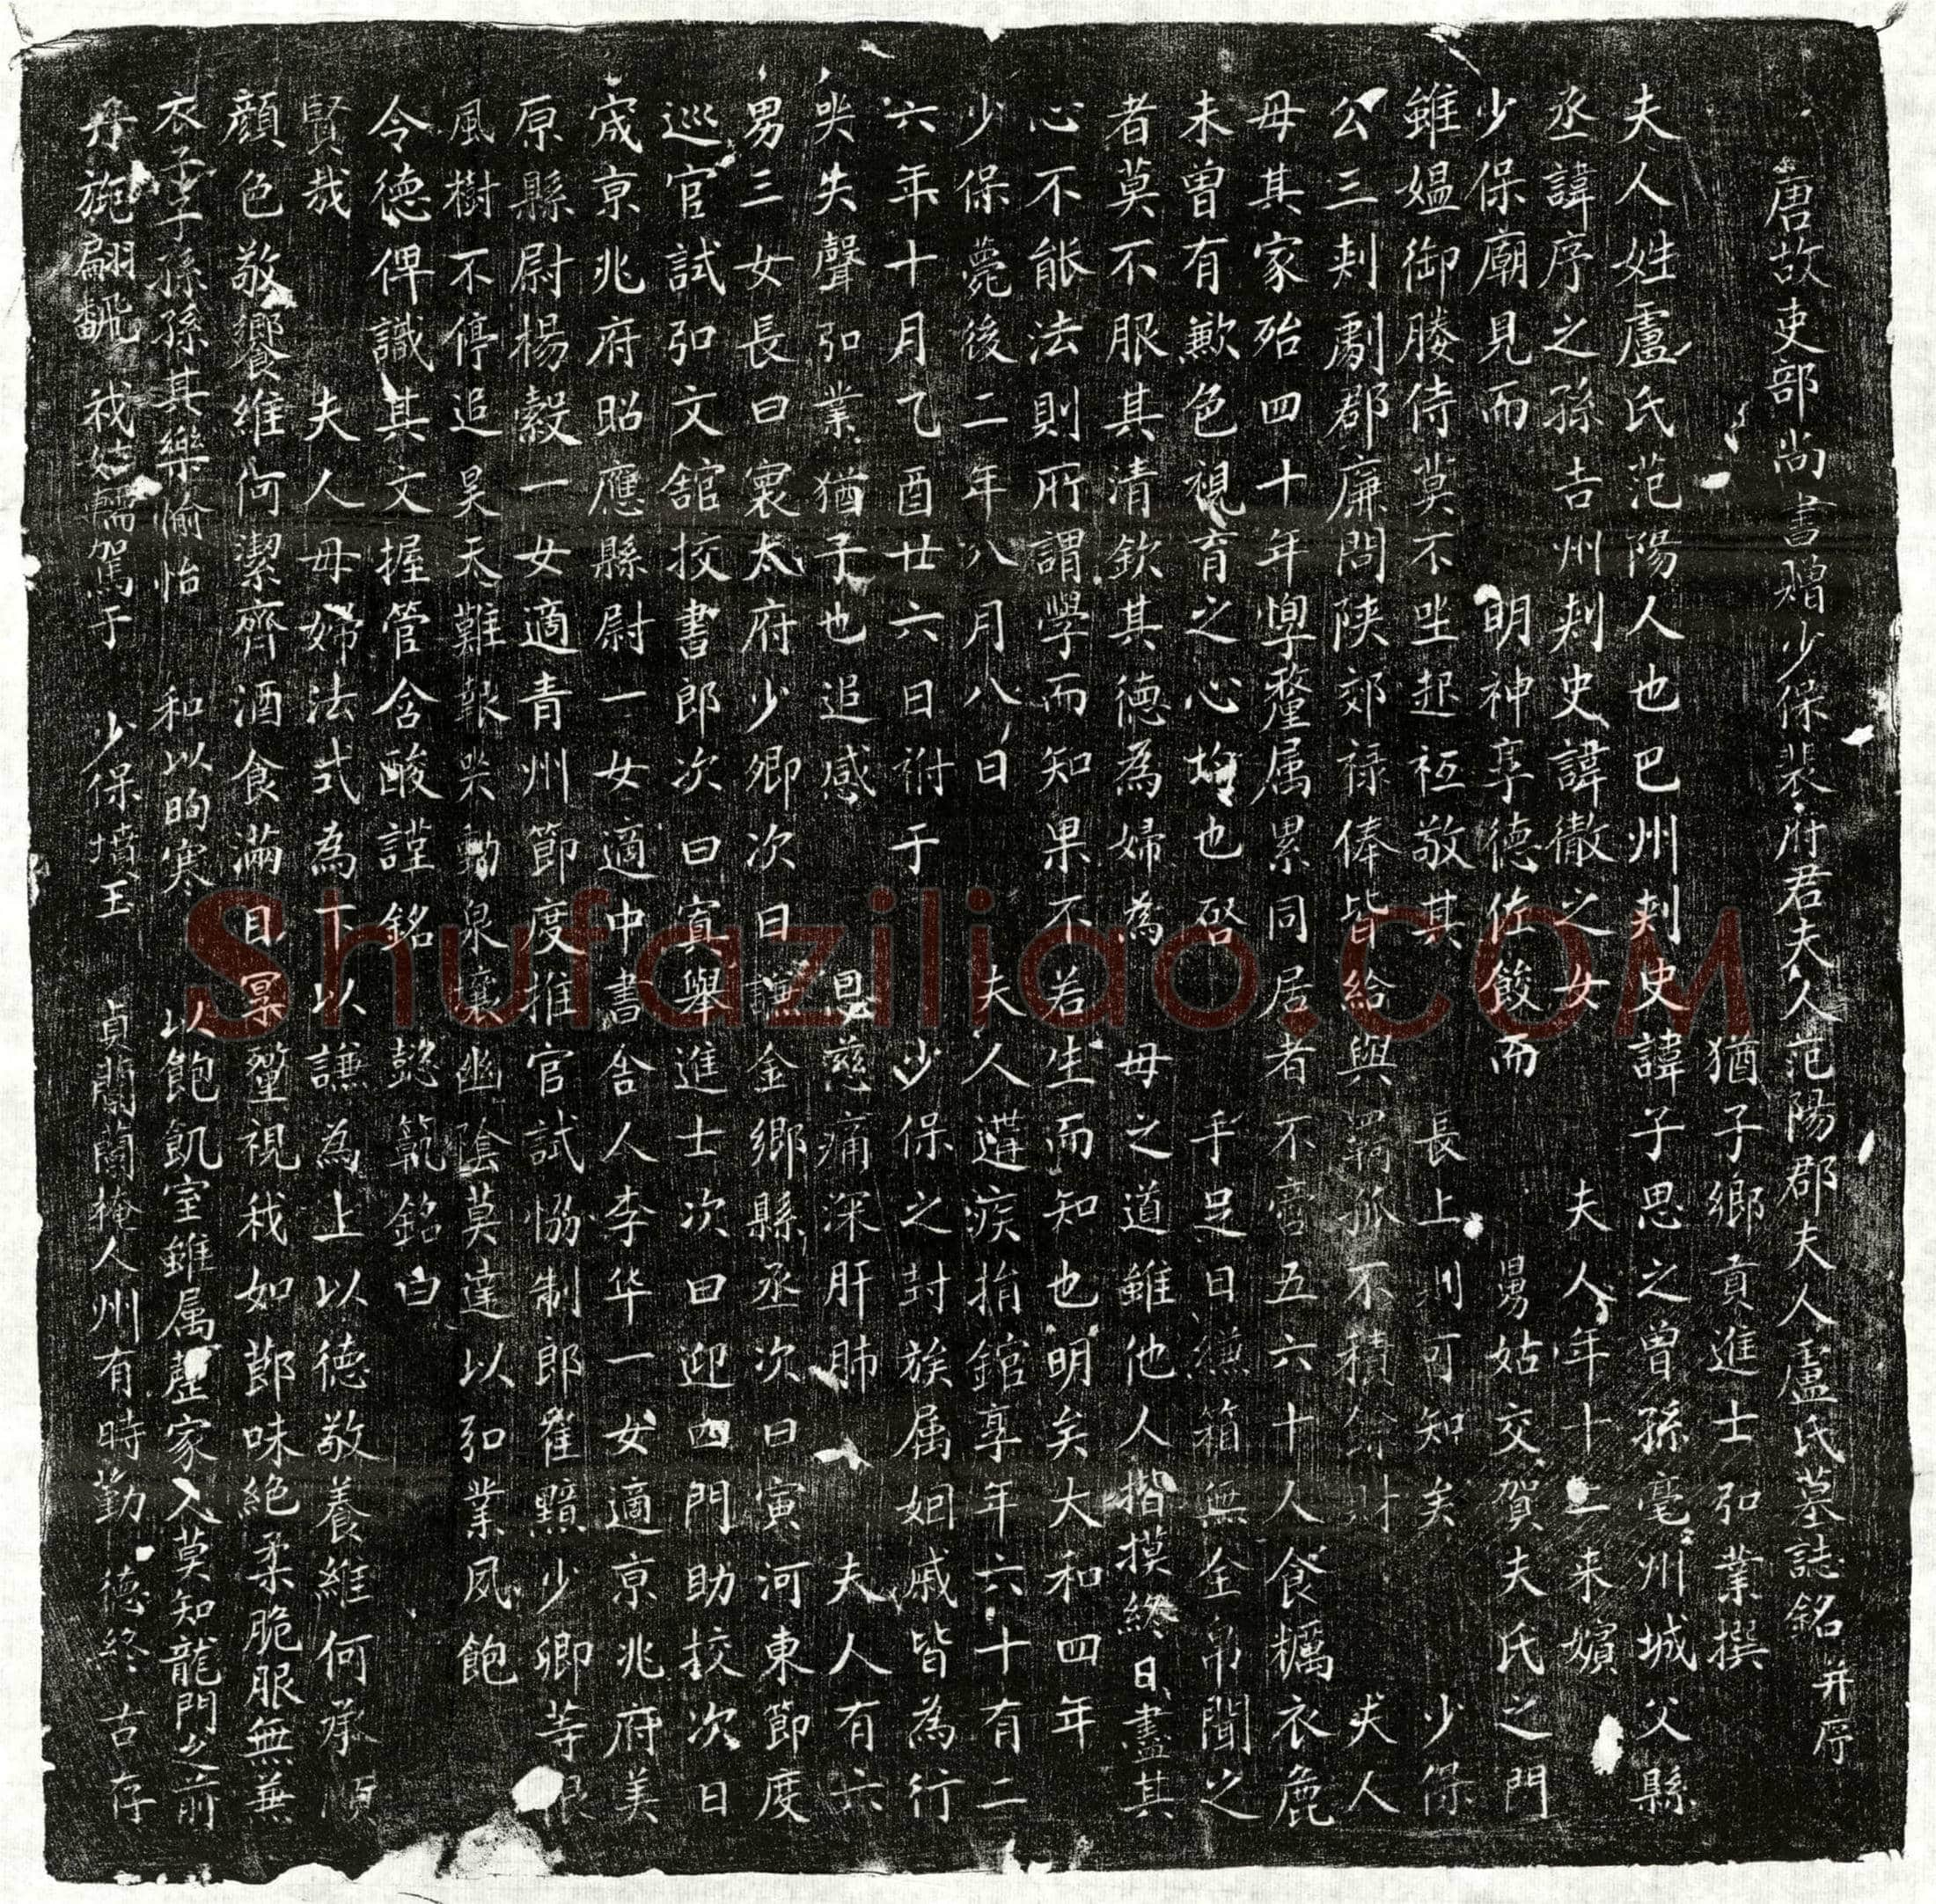 唐故吏部尚書贈少保裴府君夫人范陽郡夫人盧氏墓誌銘并序
猶子鄉貢進士弘業撰
夫人姓盧氏范陽人也巴州刺史諱子思之曾孫亳州城父縣
丞諱序之孫吉州刺史諱徹之女 夫人年十二来嬪
少保廟見而 明神享德佐餕而 舅姑交賀夫氏之門
雖媼御媵侍莫不坐起袵敬其 長上則可知矣 少保
公三刾劇郡廉問陝郊祿俸皆給與羇孤不積餘財 夫人
母其家殆四十年惸嫠属累同居者不啻五六十人食糲衣麁
未曾有歉色視育之心均也啓 手足日縑箱無全帛聞之
者莫不服其清欽其德為婦為 母之道雖他人揩摸終日盡其
心不能法則所謂學而知果不若生而知也明矣大和四年
少保薨後二年八月八日 夫人遘疾捐舘享年六十有二
六年十月乙酉廿六日祔于 少保之封族属姻戚皆為行
哭失聲弘業猶子也追感 恩慈痛深肝肺 夫人有六
男三女長曰寰太府少卿次曰譙金鄉縣丞次曰寅河東節度
巡官試弘文舘挍書郎次曰寘舉進士次曰迎四門助挍次曰
宬京兆府昭應縣尉一女適中書舍人李华一女適京兆府美
原縣尉楊縠一女適青州節度推官試協制郎崔黯少卿等恨
風樹不停追昊天難報哭動泉壤幽陰莫達以弘業夙飽
令德俾識其文握管含酸謹銘 懿範銘曰
賢哉 夫人母婦法式為下以謙為上以德敬養維何承順
顏色敬饗維何潔齊酒食滿目㷀嫠視我如鄞味絕柔脆服無兼
衣子子孫孫其樂愉怡 和以昫寒 以飽飢室雖属歷家人莫知龍門之前
丹旐翩飜 我姑輀駕于 少保墳玉 貞蘭蘭掩人州有時勤德終古存
Shufaziliao.COM